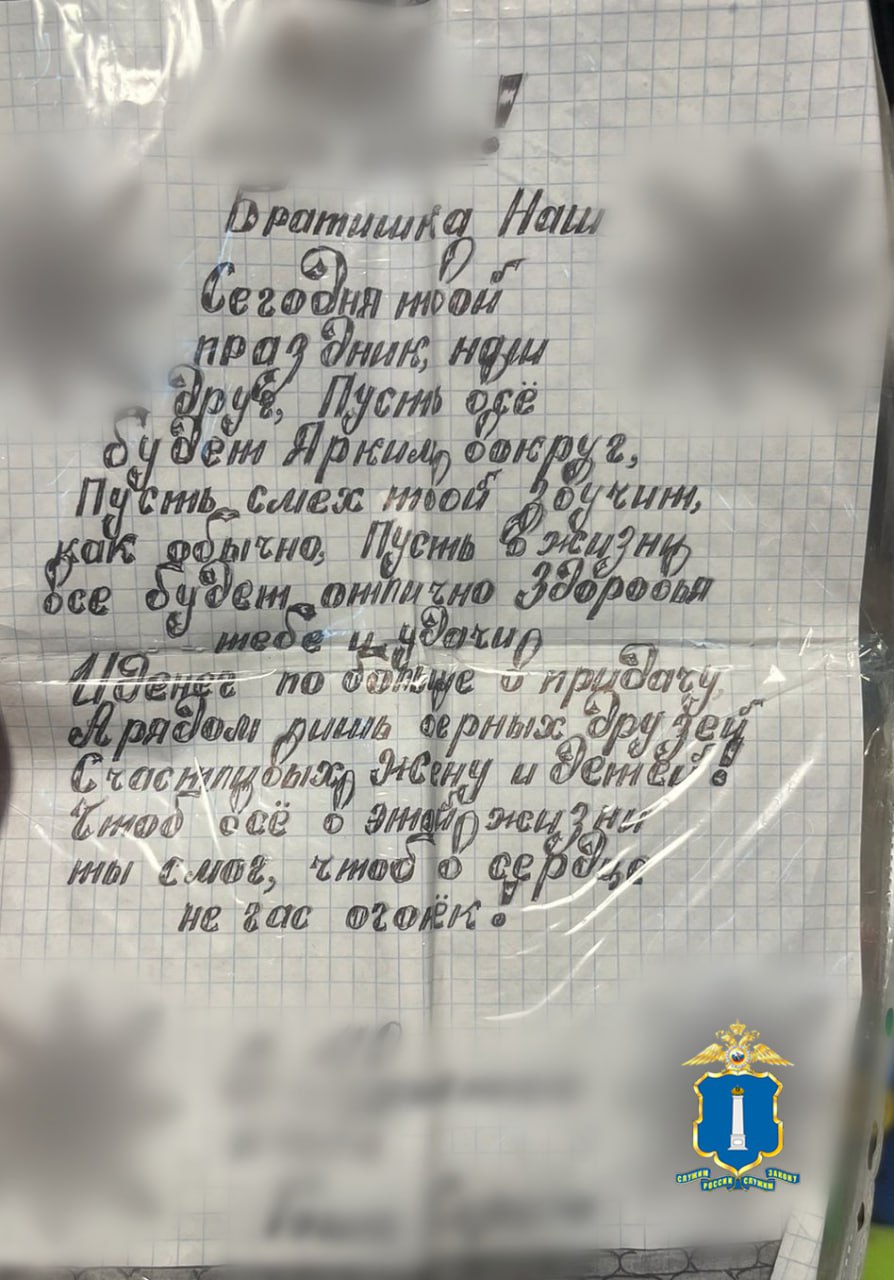 !
Братишка Наш
Сегодня твой
праздник, наш
друг, Пусть всё
будет Ярким вокруг,
Пусть смех твой звучит,
как обычно, Пусть в жизни
все будет отлично Здоровья
тебе и удачи
И денег по больше в придачу
А рядом лишь верных друзей
Счастливых, Жену и детей!
Чтоб всё в этой жизни
ты смог, чтоб в сердце
не гас огоёк!
СЛУЖИМ РОССИИ СЛУЖИМ ЗАКОНУ